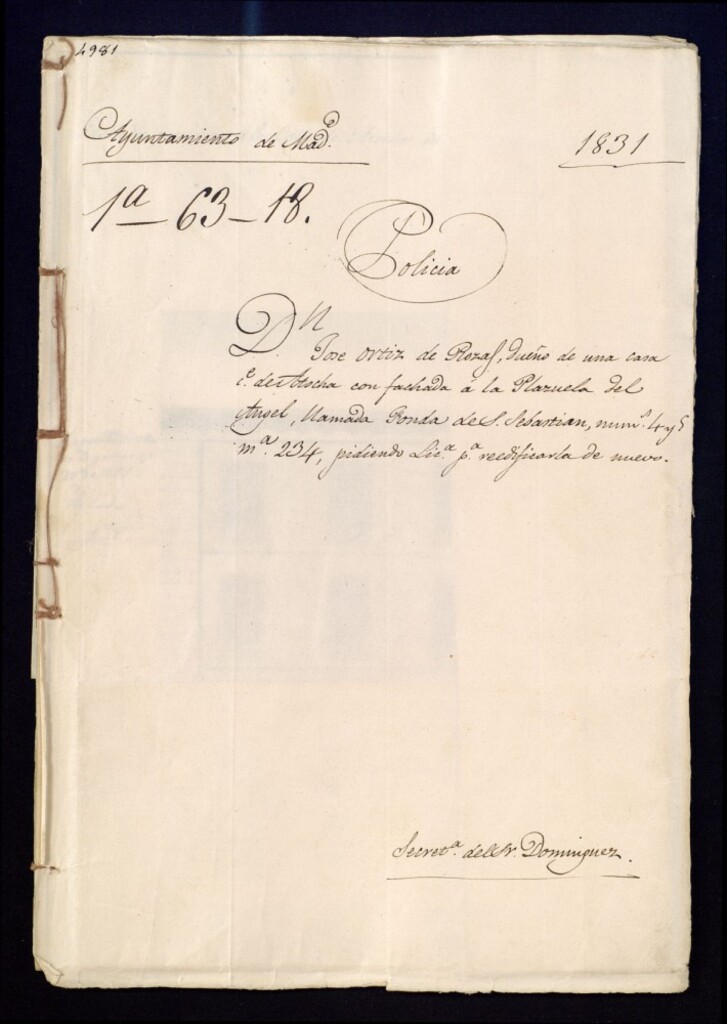 4981
Ayuntamiento de Mad.^d
1831
1ª-63-18.
Policia
D.^n Jose Ortiz de Rozas, dueño de una casa
c.^e de Atocha con fachada á la Plazuela del
Angel, llamada Fonda de S. Sebastian, num.^s 4 y 5
m.ª 234, pidiendo Lic.ª p.ª reedificarla de nuevo.
Secret.ª del Sr. Dominguez.